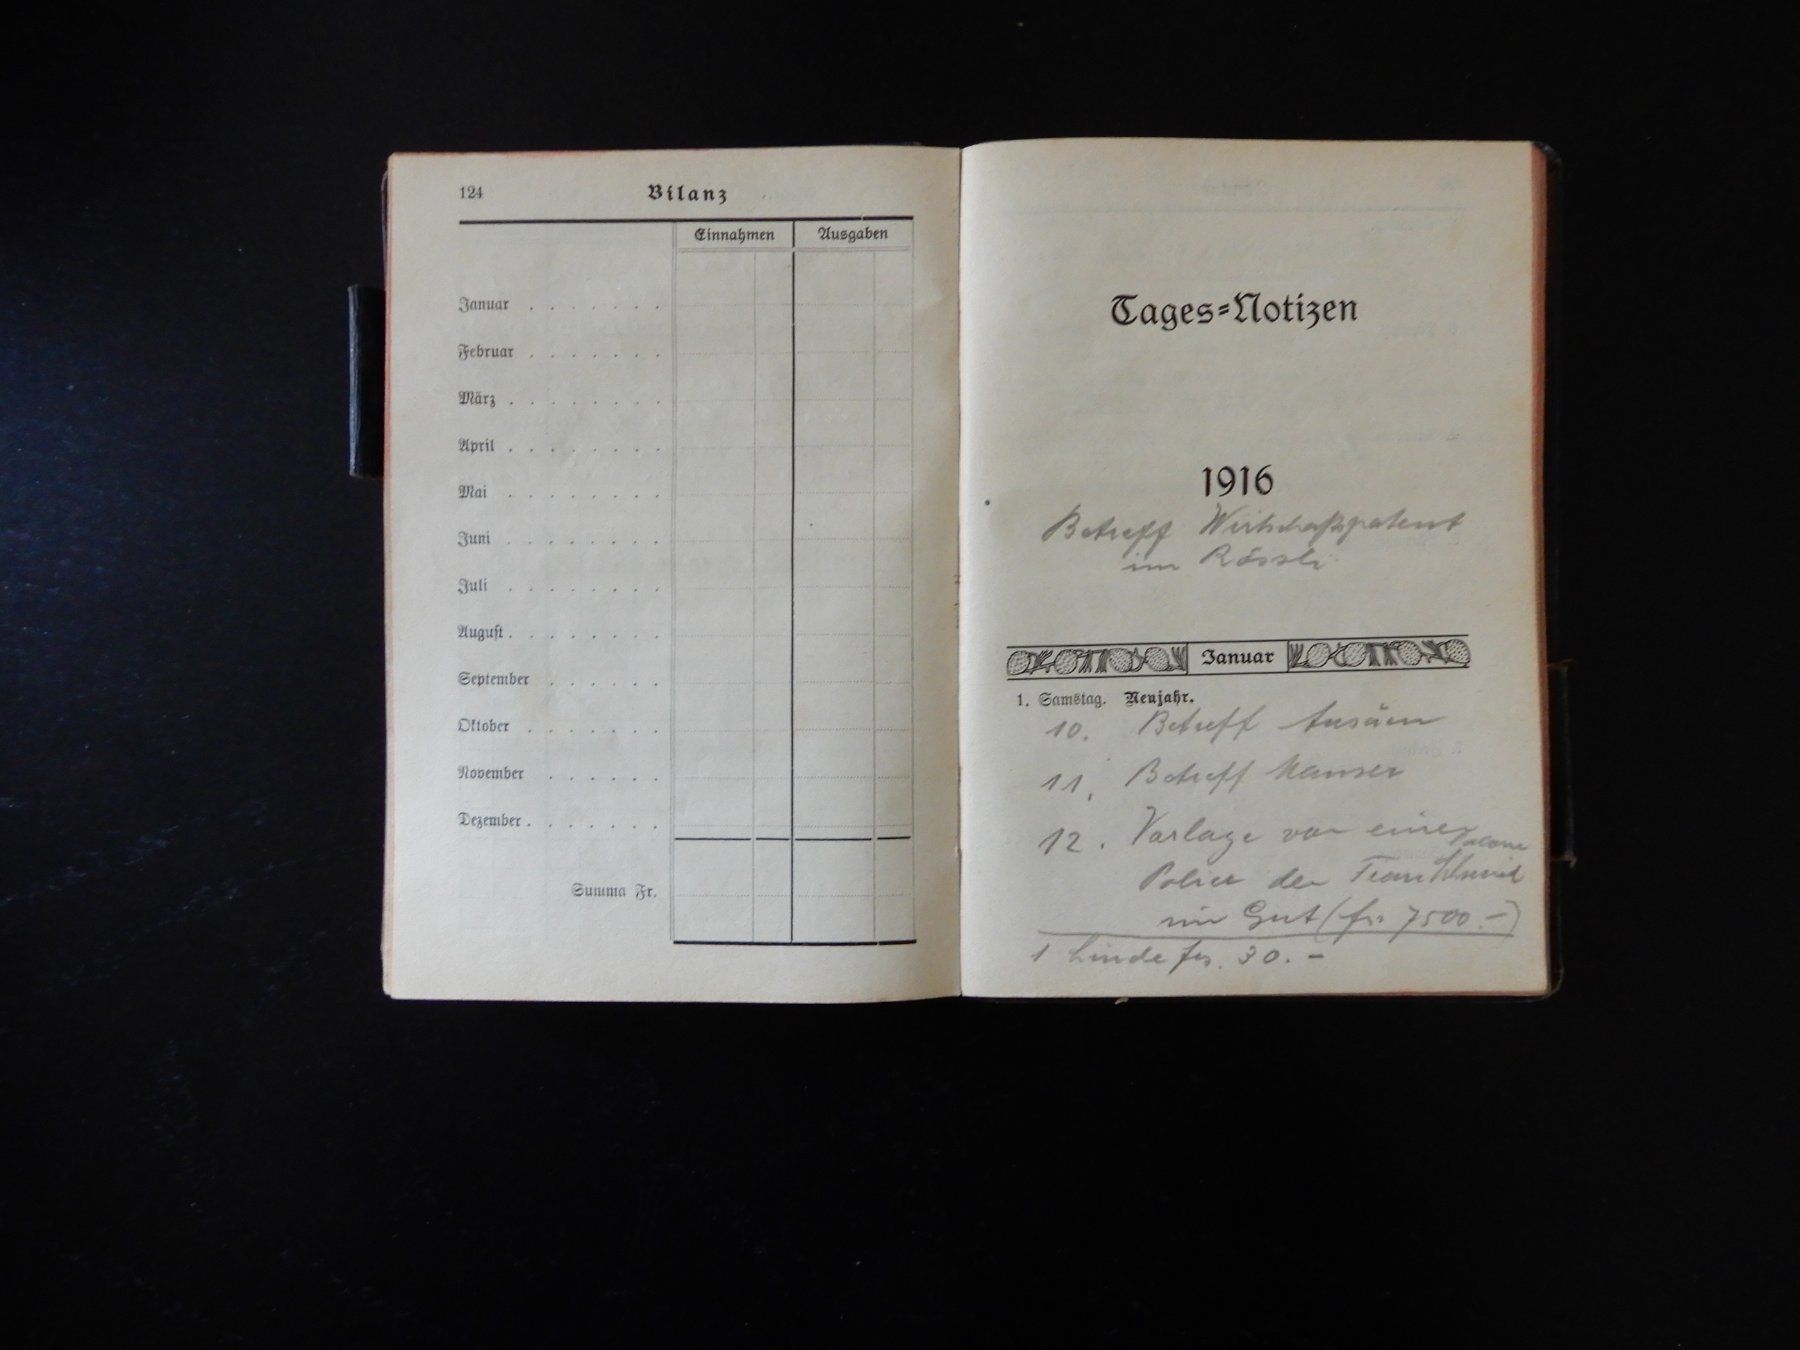 124
Bilanz
Einnahmen Ausgaben
Januar . . . . . . .
Februar . . . . . . .
März . . . . . . . .
April . . . . . . . .
Mai . . . . . . . .
Juni . . . . . . . .
Juli . . . . . . . .
August . . . . . . . .
September . . . . . .
Oktober . . . . . . .
November . . . . . .
Dezember . . . . . . .
Summa Fr.
Tages-Notizen
1916
Betreff Wirtschaftspatent
im Rössli
Januar
1. Samstag. Neujahr.
10. Betreff
11. Betreff
12. Vorlage von einer
Police der Frau Schmid
im Gut (frs 7500.-)
1 Linde frs. 30.-